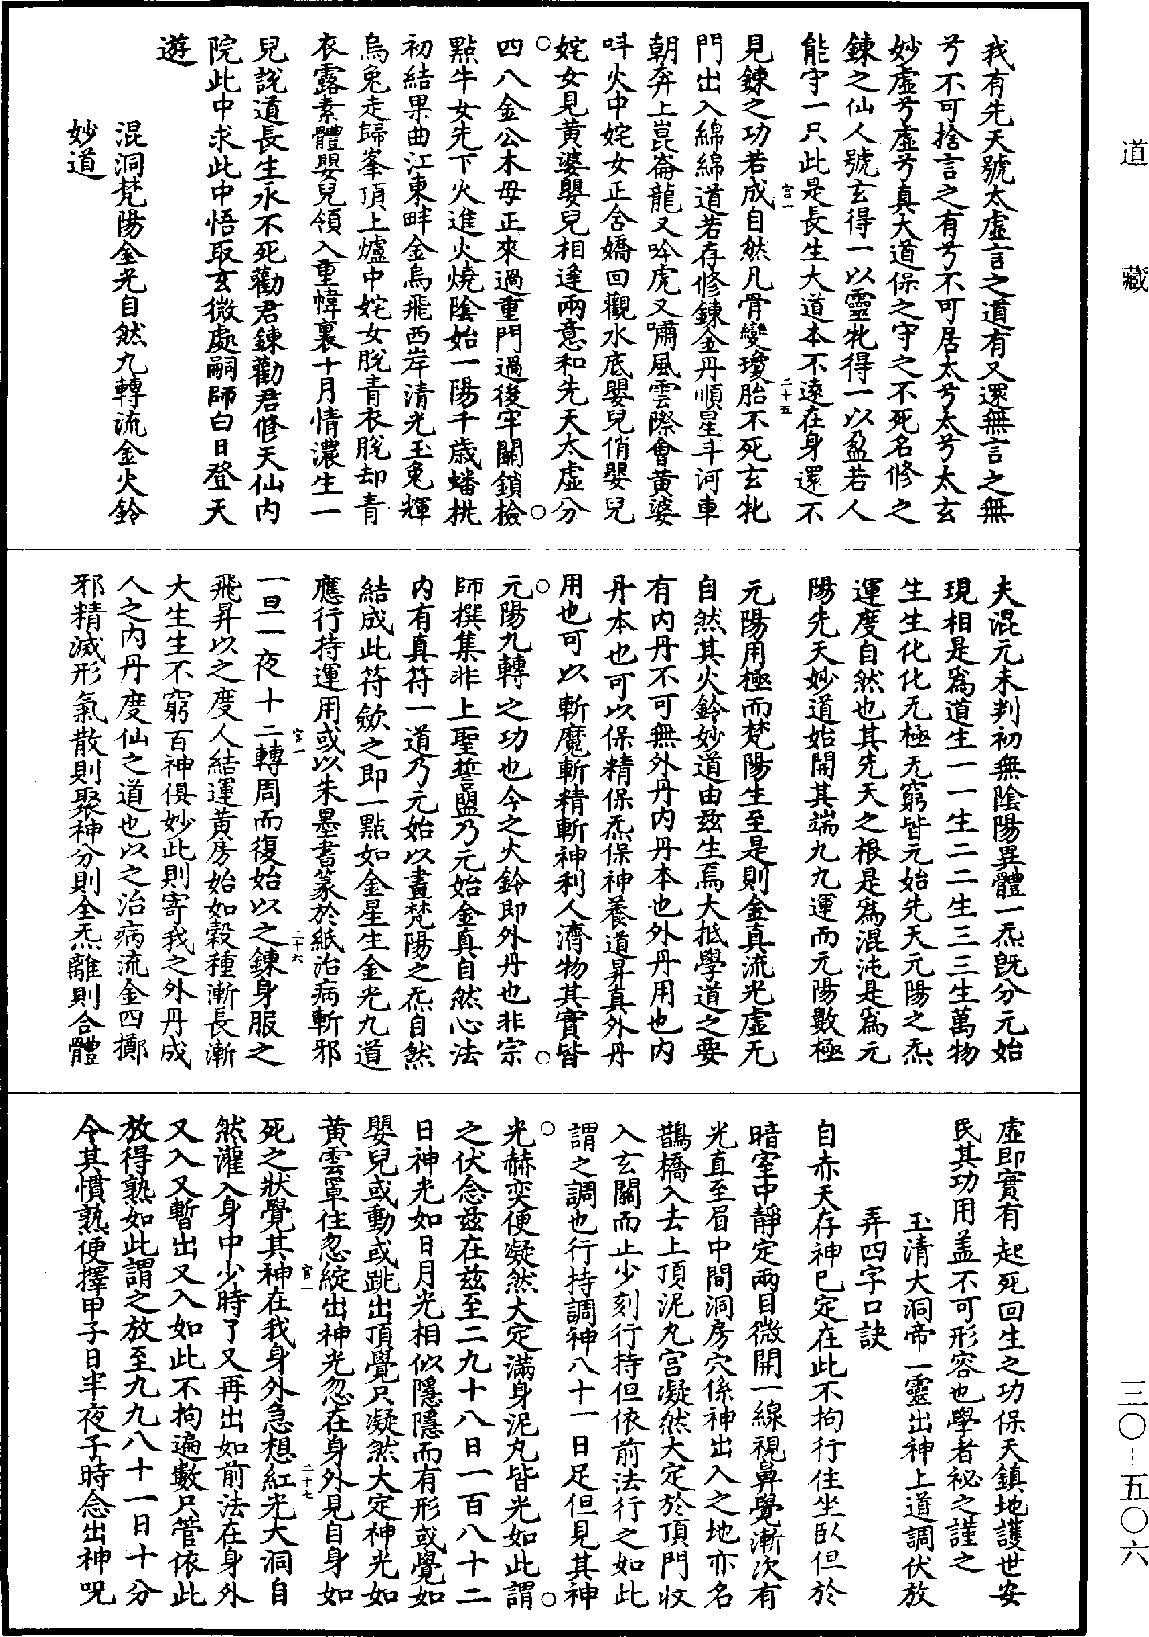 道藏
三〇－五〇六
我有先天號太虛言之道有又還無言之無
兮不可捨言之有兮不可居太兮太兮太玄
妙虛兮虛兮真大道保之守之不死名修之
鍊之仙人號玄得一以靈牝得一以盈若人
能守一只此是長生大道本不遠在身還不
宫一
二十五
見鍊之功若成自然凡骨變瓊胎不死玄牝
門出入綿綿道若存修鍊金丹順星斗河車
朝奔上崑崙龍又吟虎又嘯風雲際會黃婆
呌火中姹女正舍嬌回觀水底嬰兒俏嬰兒
姹女見黃婆嬰兒相逢兩意和先天太虛分
四八金公木母正來過重門過後牢關鎖檢
點牛女先下火進火燒陰始一陽千歲蟠桃
初結果曲江東畔金烏飛西岸清光玉兔輝
烏兔走歸峯頂上爐中姹女脫青衣脫却青
衣露素體嬰兒領入重幃裏十月情濃生一
兒說道長生永不死勸君鍊勸君修天仙内
院此中求此中悟取玄微處嗣師白日登天
遊
混洞梵陽金光自然九轉流金火鈴
妙道
夫混元未判初無陰陽異體一炁既分元始
現相是爲道生一一生二二生三三生萬物
生生化化无極无窮皆元始先天元陽之炁
運度自然也其先天之根是爲混沌是爲元
陽先天妙道始開其端九九運而元陽數極
元陽用極而梵陽生至是則金真流光虛无
自然其火鈴妙道由茲生焉大抵學道之要
有内丹不可無外丹内丹本也外丹用也内
丹本也可以保精保炁保神養道昇真外丹
用也可以斬魔斬精斬神利人濟物其實皆
元陽九轉之功也今之火鈴即外丹也非宗
師撰集非上聖誓盟乃元始金真自然心法
内有真符一道乃元始以畫梵陽之炁自然
結成此符歛之即一點如金星生金光九道
應行持運用或以朱墨書篆於紙治病斬邪
宫一
二十六
一旦一夜十二轉周而復始以之鍊身服之
飛昇以之度人結運黃房始如穀種漸長漸
大生生不窮百神俱妙此則寄我之外丹成
人之内丹度仙之道也以之治病流金四擲
邪精滅形氣散則聚神分則全炁離則合體
虛即實有起死回生之功保天鎮地護世安
民其功用盖不可形容也學者祕之謹之
玉清大洞帝一靈出神上道調伏放
弄四字口訣
自赤天存神已定在此不拘行住坐臥但於
暗室中靜定兩目微開一線視鼻覺漸次有
光直至眉中間洞房穴係神出入之地亦名
鵲橋入去上頂泥丸宫凝然大定於頂門收
入玄關而止少刻行持但依前法行之如此
謂之調也行持調神八十一日足但見其神
光赫奕便凝然大定滿身泥丸皆光如此謂
之伏念茲在茲至二九十八日一百八十二
日神光如日月光相似隱隱而有形或覺如
嬰兒或動或跳出頂覺只凝然大定神光如
黃雲罩住忽綻出神光忽在身外見自身如
宫一
二十七
死之狀覺其神在我身外急想紅光大洞自
然灌入身中少時了又再出如前法在身外
又入又暫出又入如此不拘遍數只管依此
放得熟如此謂之放至九九八十一日十分
令其慣熟便擇甲子日半夜子時念出神呪